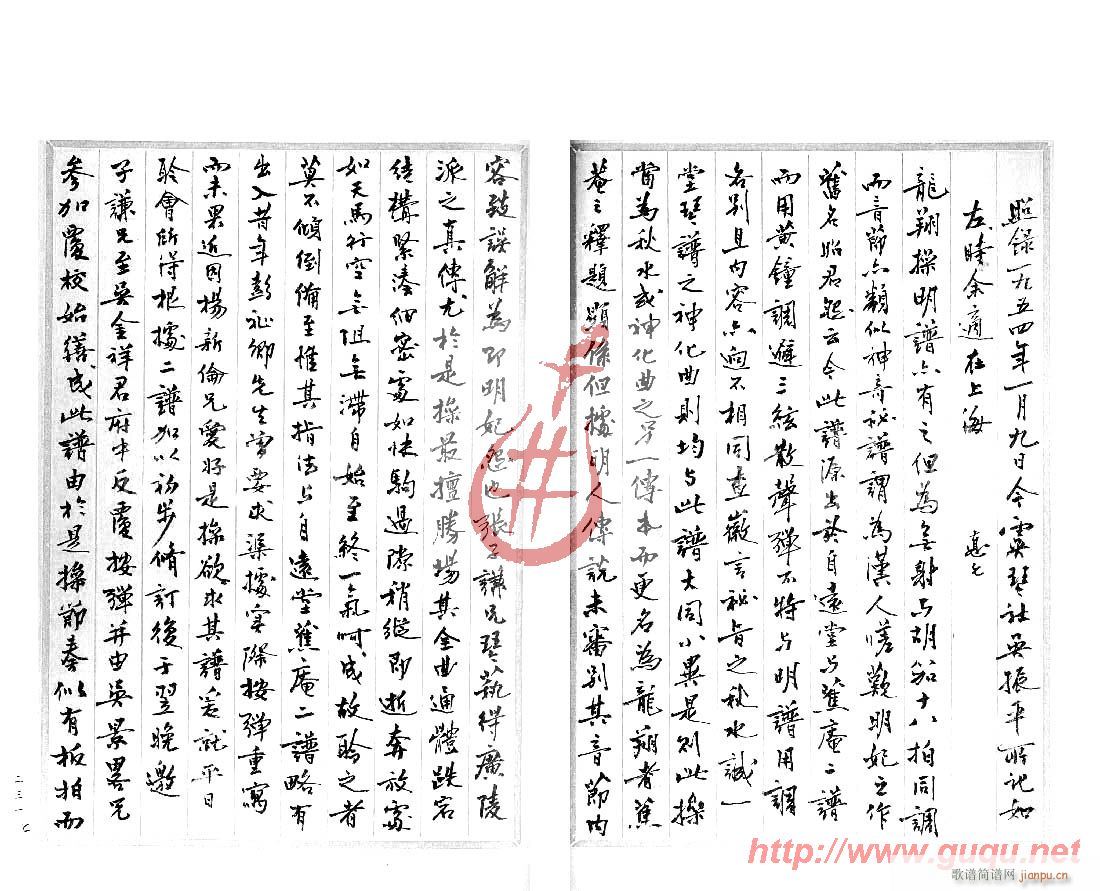 照錄一九五四年一月九日今虞琴社吳振平所記如
左時余適在上海
龍翔操明譜亦有之但為無射與胡笳十八拍同調
而音節亦類似神奇秘譜謂為漢人嗟歎明妃之作
舊名昭君怨云今此譜源出於自遠堂與蕉庵二譜
而用黃鐘調遞三絃散聲彈不特與明譜用調
各別且內容亦迥不相同查徽言秘旨之秋水誠一
堂琴譜之神化曲則均與此譜大同小異是則此操
當為秋水或神化曲之另一傳本而更名為龍翔者蕉
菴之釋題顯係但據明人傳說未審別其音節內
容致誤解為即明妃怨也張子謙兄琴藝得廣陵
派之真傳尤於是操最擅勝場其全曲通體跌宕
結構緊湊細密處如快駒過隙稍縱即逝奔放處
如天馬行空無阻無滯自始至終一氣呵成故聆之者
莫不傾倒備至惟其指法與自遠堂蕉庵二譜略有
出入昔年彭祉卿先生嘗要求渠據實際按彈重寫
而未果近因楊新倫兄愛好是操欲求其譜爰就平日
聆會所得根據二譜加以初步脩訂後于翌晚邀
子謙兄至吳金祥君府中反覆按彈并由吳景畧兄
參加覆校始繕成此譜由於是操節奏似有板拍而
二三一
http://www.guqu.net
歌谱简谱网
jianpu.cn